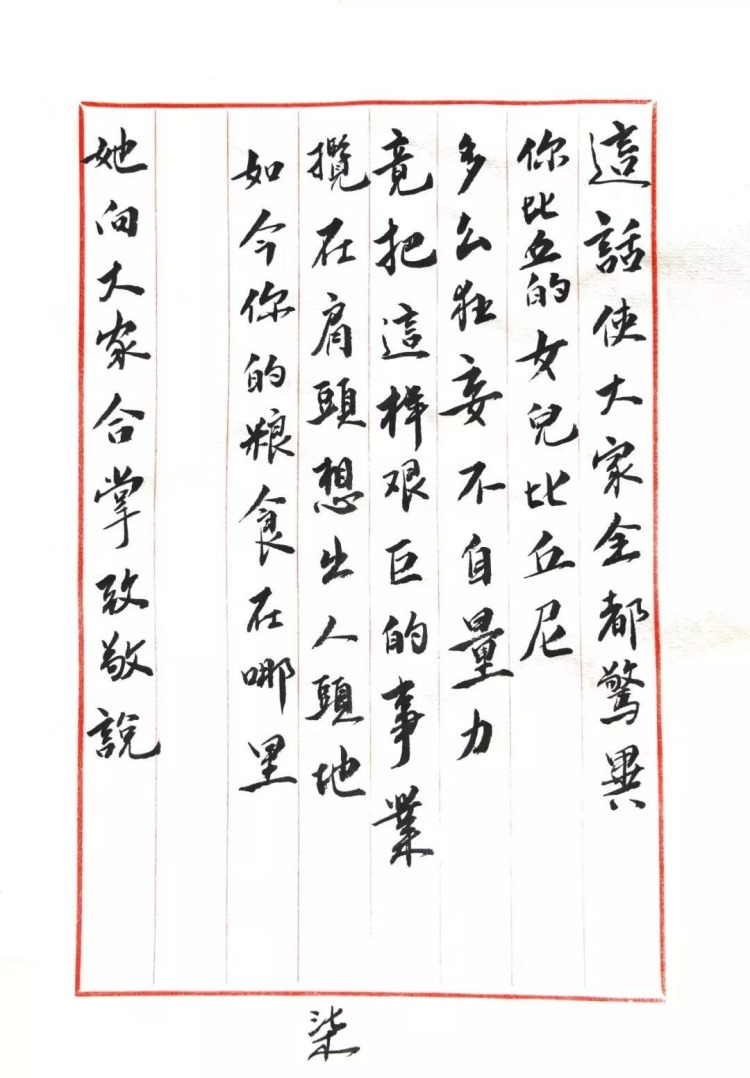 這話使大家全都驚異
你比丘的女兒比丘尼
多么狂妄不自量力
竟把這样艰巨的事業
攬在肩頭想出人頭地
如今你的粮食在哪里
她向大家合掌致敬說
柒